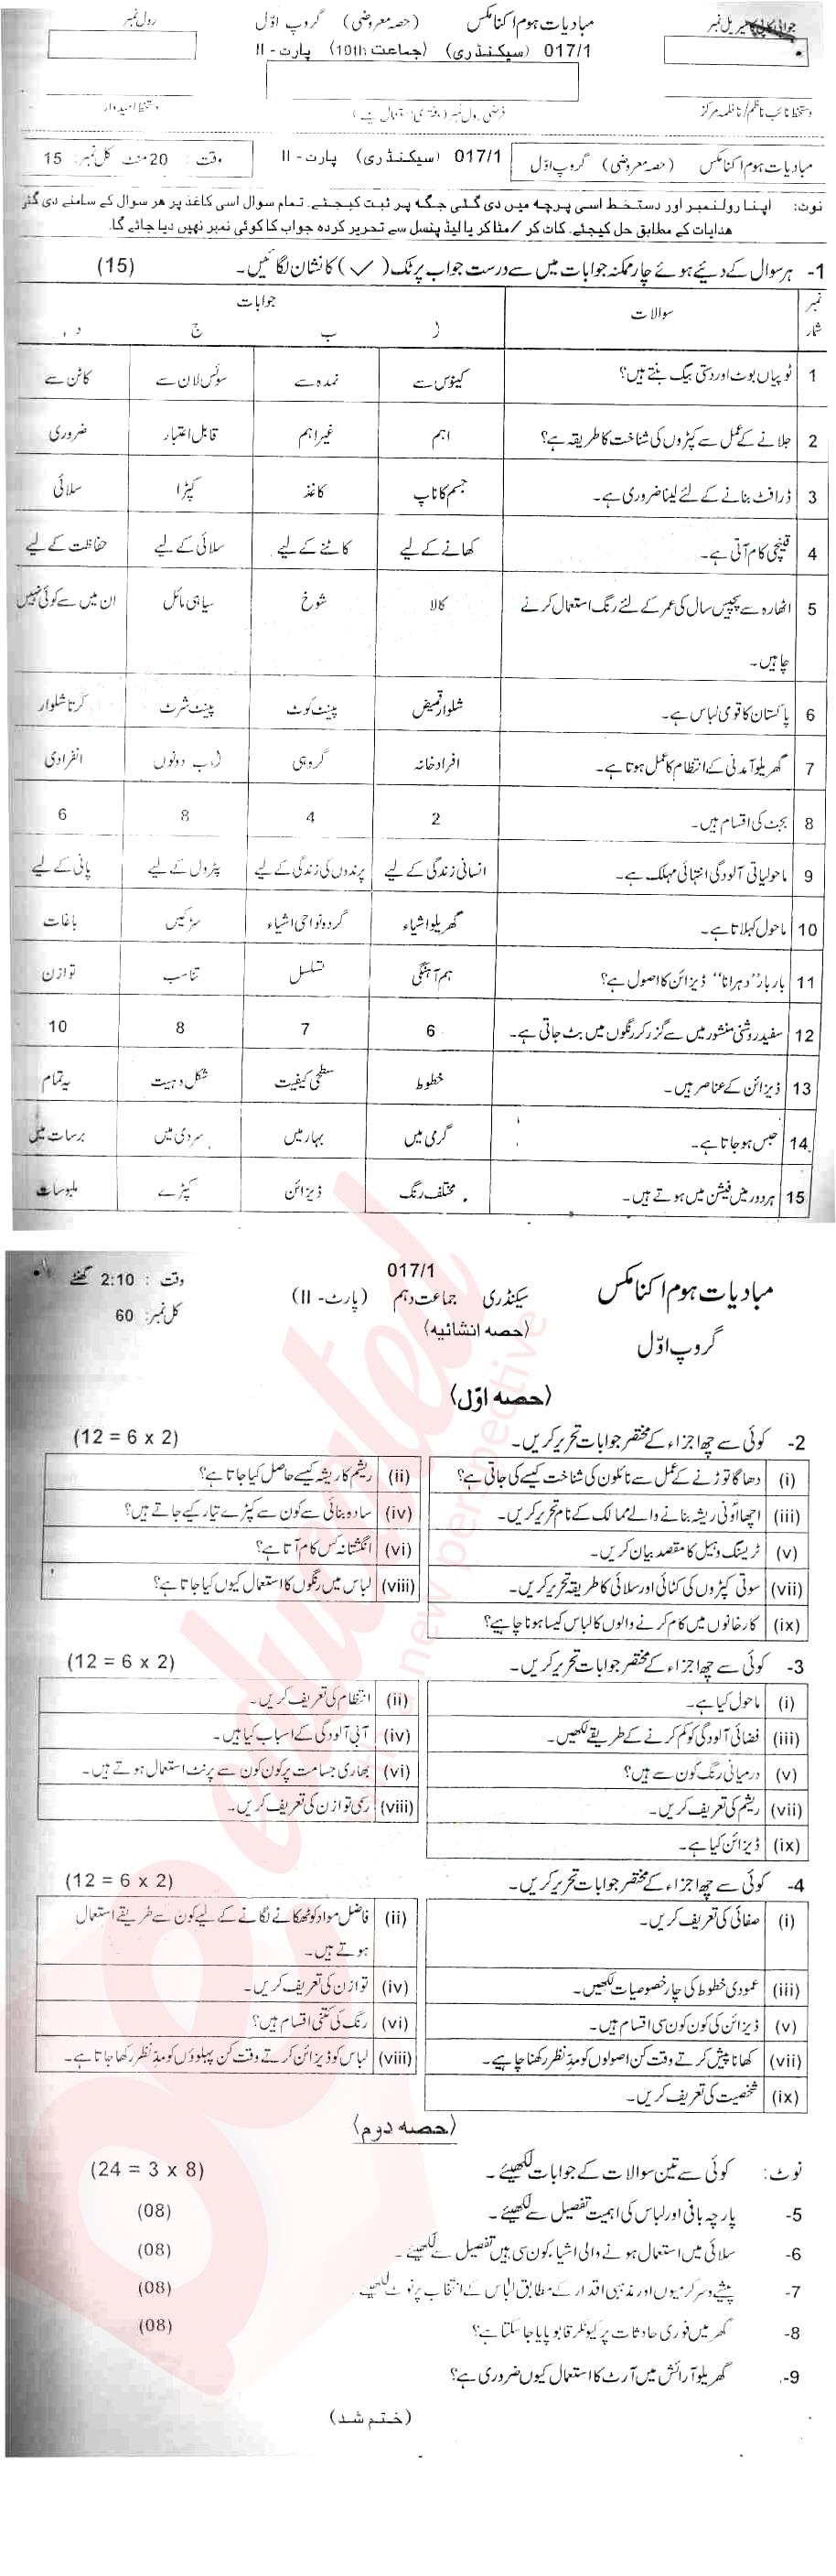 جوابی کاپی سیریل نمبر
مبادیات ہوم اکنامکس (حصہ معروضی) گروپ اوّل
رول نمبر
017/1 (سیکنڈری) (جماعت 10th) پارٹ - II
دستخط نائب ناظم/ناظمہ مرکز
فرضی رول نمبر (دفتری استعمال کیلئے)
دستخط امیدوار
مبادیات ہوم اکنامکس (حصہ معروضی) گروپ اوّل 017/1 (سیکنڈری) پارٹ - II وقت : 20 منٹ کل نمبر: 15
نوٹ: اپنا رولنمبر اور دستخط اسی پرچہ میں دی گئی جگہ پر ثبت کیجئے۔ تمام سوال اسی کاغذ پر ھر سوال کے سامنے دی گئی
ھدایات کے مطابق حل کیجئے۔ کاٹ کر /مٹا کر یا لیڈ پنسل سے تحریر کردہ جواب کا کوئی نمبر نہیں دیا جائے گا۔
1- ہر سوال کے دیئے ہوئے چار ممکنہ جوابات میں سے درست جواب پر ٹک (✓) کا نشان لگائیں۔ (15)
نمبر شمار سوالات جوابات
ا ب ج د
1 ٹوپیاں بوٹ اور دستی بیگ بنتے ہیں؟ کینوس سے نمدہ سے سوئس لان سے کاٹن سے
2 جلانے کے عمل سے کپڑوں کی شناخت کا طریقہ ہے؟ اہم غیر اہم قابل اعتبار ضروری
3 ڈرافٹ بنانے کے لئے لینا ضروری ہے۔ جسم کا ناپ کاغذ کپڑا سلائی
4 قینچی کام آتی ہے۔ کھانے کے لیے کاٹنے کے لیے سلائی کے لیے حفاظت کے لیے
5 اٹھارہ سے پچیس سال کی عمر کے لئے رنگ استعمال کرنے کالا شوخ سیاہی مائل ان میں سے کوئی نہیں
چاہیں۔
6 پاکستان کا قومی لباس ہے۔ شلوار قمیض پینٹ کوٹ پینٹ شرٹ کرتا شلوار
7 گھریلو آمدنی کے انتظام کا عمل ہوتا ہے۔ افراد خانہ گروہی ا،ب دونوں انفرادی
8 بجٹ کی اقسام ہیں۔ 2 4 8 6
9 ماحولیاتی آلودگی انتہائی مہلک ہے۔ انسانی زندگی کے لیے پرندوں کی زندگی کے لیے پٹرول کے لیے پانی کے لیے
10 ماحول کہلاتا ہے۔ گھریلو اشیاء گردونواحی اشیاء سڑکیں باغات
11 بار بار "دہرانا" ڈیزائن کا اصول ہے؟ ہم آہنگی تسلسل تناسب توازن
12 سفید روشنی منشور میں سے گزر کر رنگوں میں بٹ جاتی ہے۔ 6 7 8 10
13 ڈیزائن کے عناصر ہیں۔ خطوط سطحی کیفیت شکل و ہیت یہ تمام
14 حبس ہو جاتا ہے۔ گرمی میں بہار میں سردی میں برسات میں
15 ہر دور میں فیشن میں ہوتے ہیں۔ مختلف رنگ ڈیزائن کپڑے ملبوسات
مبادیات ہوم اکنامکس 017/1 وقت : 2:10 گھنٹے
گروپ اوّل سیکنڈری جماعت دہم (پارٹ - II) کل نمبر: 60
(حصہ انشائیہ)
(حصہ اوّل)
2- کوئی سے چھ اجزاء کے مختصر جوابات تحریر کریں۔ (12 = 6 x 2)
(i) دھاگا توڑنے کے عمل سے نائلون کی شناخت کیسے کی جاتی ہے؟ (ii) ریشم کا ریشہ کیسے حاصل کیا جاتا ہے؟
(iii) اچھا اُونی ریشہ بنانے والے ممالک کے نام تحریر کریں۔ (iv) سادہ بنائی سے کون سے کپڑے تیار کیے جاتے ہیں؟
(v) ٹریسنگ وہیل کا مقصد بیان کریں۔ (vi) انگشتانہ کس کام آتا ہے؟
(vii) سوتی کپڑوں کی کٹائی اور سلائی کا طریقہ تحریر کریں۔ (viii) لباس میں رنگوں کا استعمال کیوں کیا جاتا ہے؟
(ix) کارخانوں میں کام کرنے والوں کا لباس کیسا ہونا چاہیے؟
3- کوئی سے چھ اجزاء کے مختصر جوابات تحریر کریں۔ (12 = 6 x 2)
(i) ماحول کیا ہے۔ (ii) انتظام کی تعریف کریں۔
(iii) فضائی آلودگی کو کم کرنے کے طریقے لکھیں۔ (iv) آبی آلودگی کے اسباب کیا ہیں۔
(v) درمیانی رنگ کون سے ہیں؟ (vi) بھاری جسامت پر کون کون سے پرنٹ استعمال ہوتے ہیں۔
(vii) ریشم کی تعریف کریں۔ (viii) رسمی توازن کی تعریف کریں۔
(ix) ڈیزائن کیا ہے۔
4- کوئی سے چھ اجزاء کے مختصر جوابات تحریر کریں۔ (12 = 6 x 2)
(i) صفائی کی تعریف کریں۔ (ii) فاضل مواد کو ٹھکانے لگانے کے لیے کون سے طریقے استعمال
ہوتے ہیں۔
(iii) عمودی خطوط کی چار خصوصیات لکھیں۔ (iv) توازن کی تعریف کریں۔
(v) ڈیزائن کی کون کون سی اقسام ہیں۔ (vi) رنگ کی کتنی اقسام ہیں؟
(vii) کھانا پیش کرتے وقت کن اصولوں کو مدِنظر رکھنا چاہیے۔ (viii) لباس کو ڈیزائن کرتے وقت کن پہلوؤں کو مدِنظر رکھا جاتا ہے۔
(ix) شخصیت کی تعریف کریں۔
(حصہ دوم)
نوٹ: کوئی سے تین سوالات کے جوابات لکھیئے۔ (24 = 3 x 8)
5- پارچہ بافی اور لباس کی اہمیت تفصیل سے لکھیئے۔ (08)
6- سلائی میں استعمال ہونے والی اشیاء کون سی ہیں تفصیل سے لکھیئے۔ (08)
7- پیشے و سرگرمیوں اور مذہبی اقدار کے مطابق لباس کے انتخاب پر نوٹ لکھیے۔ (08)
8- گھر میں فوری حادثات پر کیونکر قابو پایا جا سکتا ہے؟ (08)
9- گھریلو آرائش میں آرٹ کا استعمال کیوں ضروری ہے؟
(ختم شد)